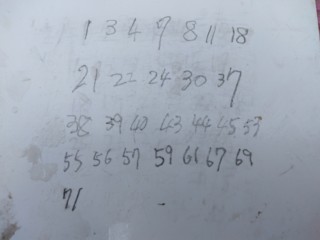 1 3 4 7 8 11 18
21 22 24 30 37
38 39 40 43 44 45 53
55 56 57 59 61 67 69
71